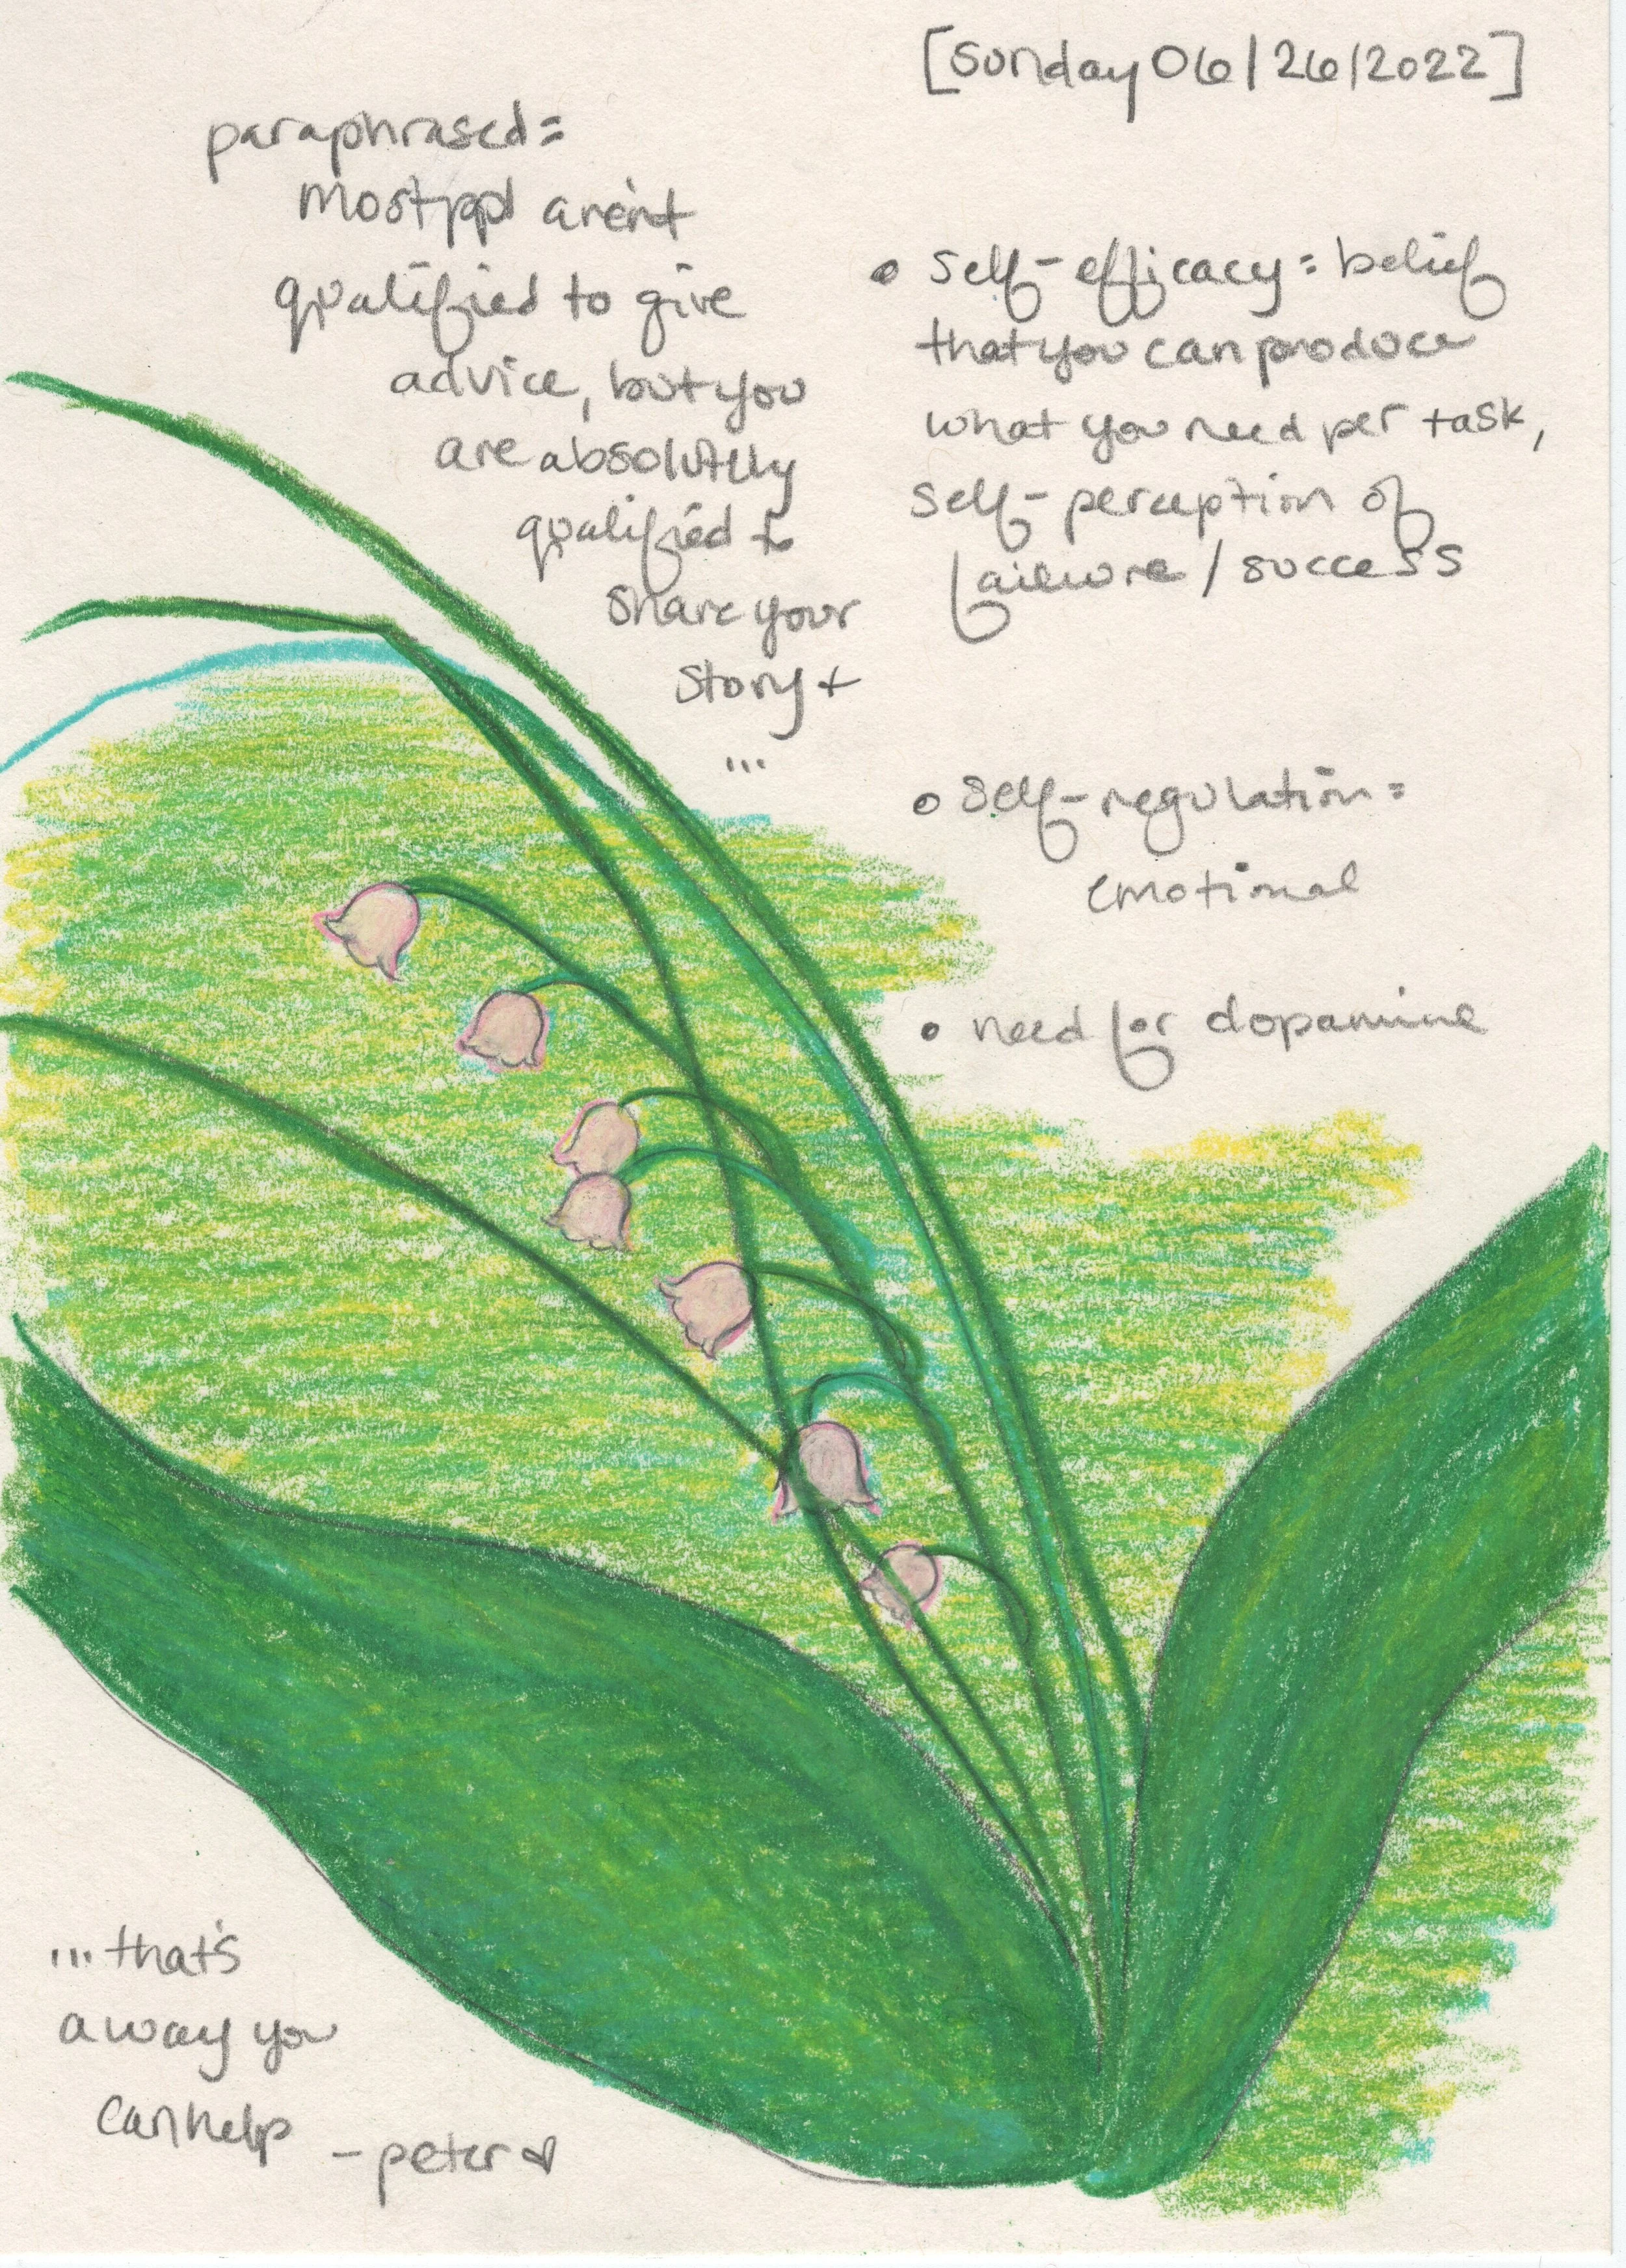 [Sunday 06/26/2022]
paraphrased=
Most ppl aren't
qualified to give
advice, but you
are absolutely
qualified to
share your
story +
...
• self-efficacy= belief
that you can produce
what you need per task,
self-perception of
failure/success
• self-regulation=
emotional
• need for dopamine
...that's
a way you
can help
-peter ♥